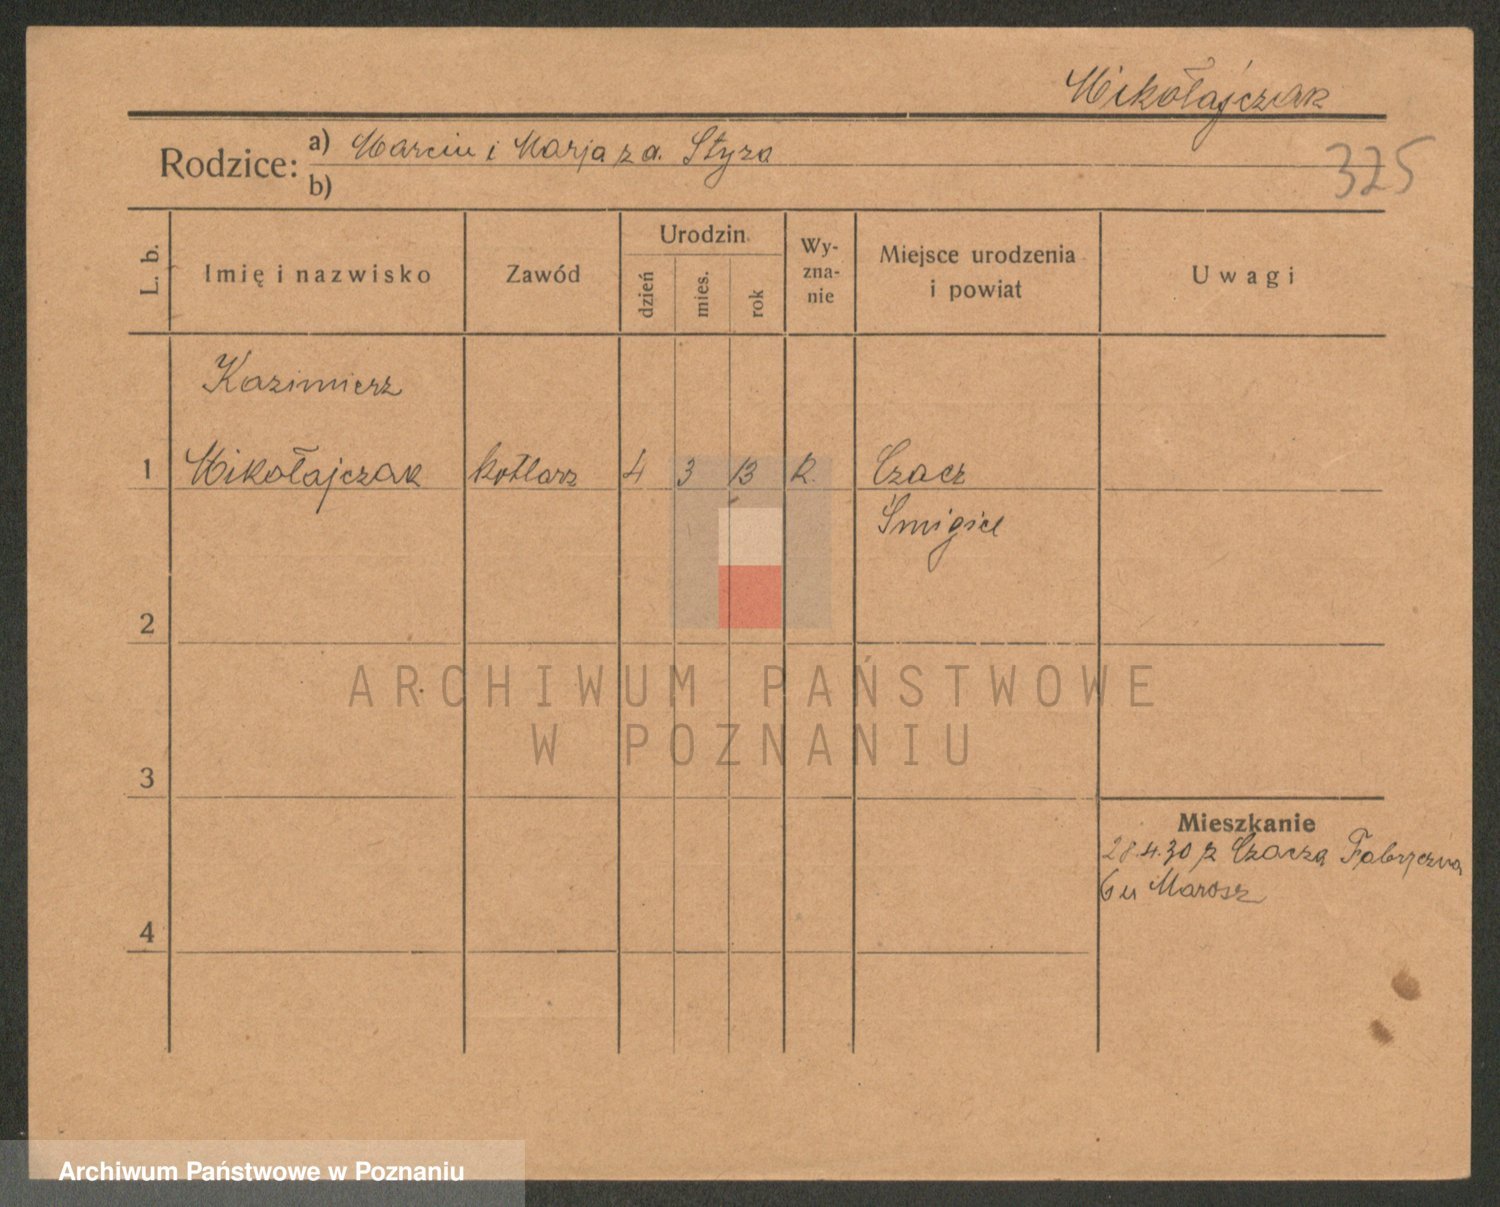 Mikołajczak
Rodzice: a) Marcin i Marja z d. Styza
325
b)
L. b.
Imię i nazwisko
Zawód
Urodzin
dzień
mies.
rok
Wy-
zna-
nie
Miejsce urodzenia
i powiat
Uwagi
Kazimierz
1 Mikołajczak kotlarz 4 3 13 R. Czacz
Śmigiel
2
ARCHIWUM PAŃSTWOWE
W POZNANIU
3
Mieszkanie
28.4.30 z Czacza Fabryczna
6 u Marosz
4
Archiwum Państwowe w Poznaniu